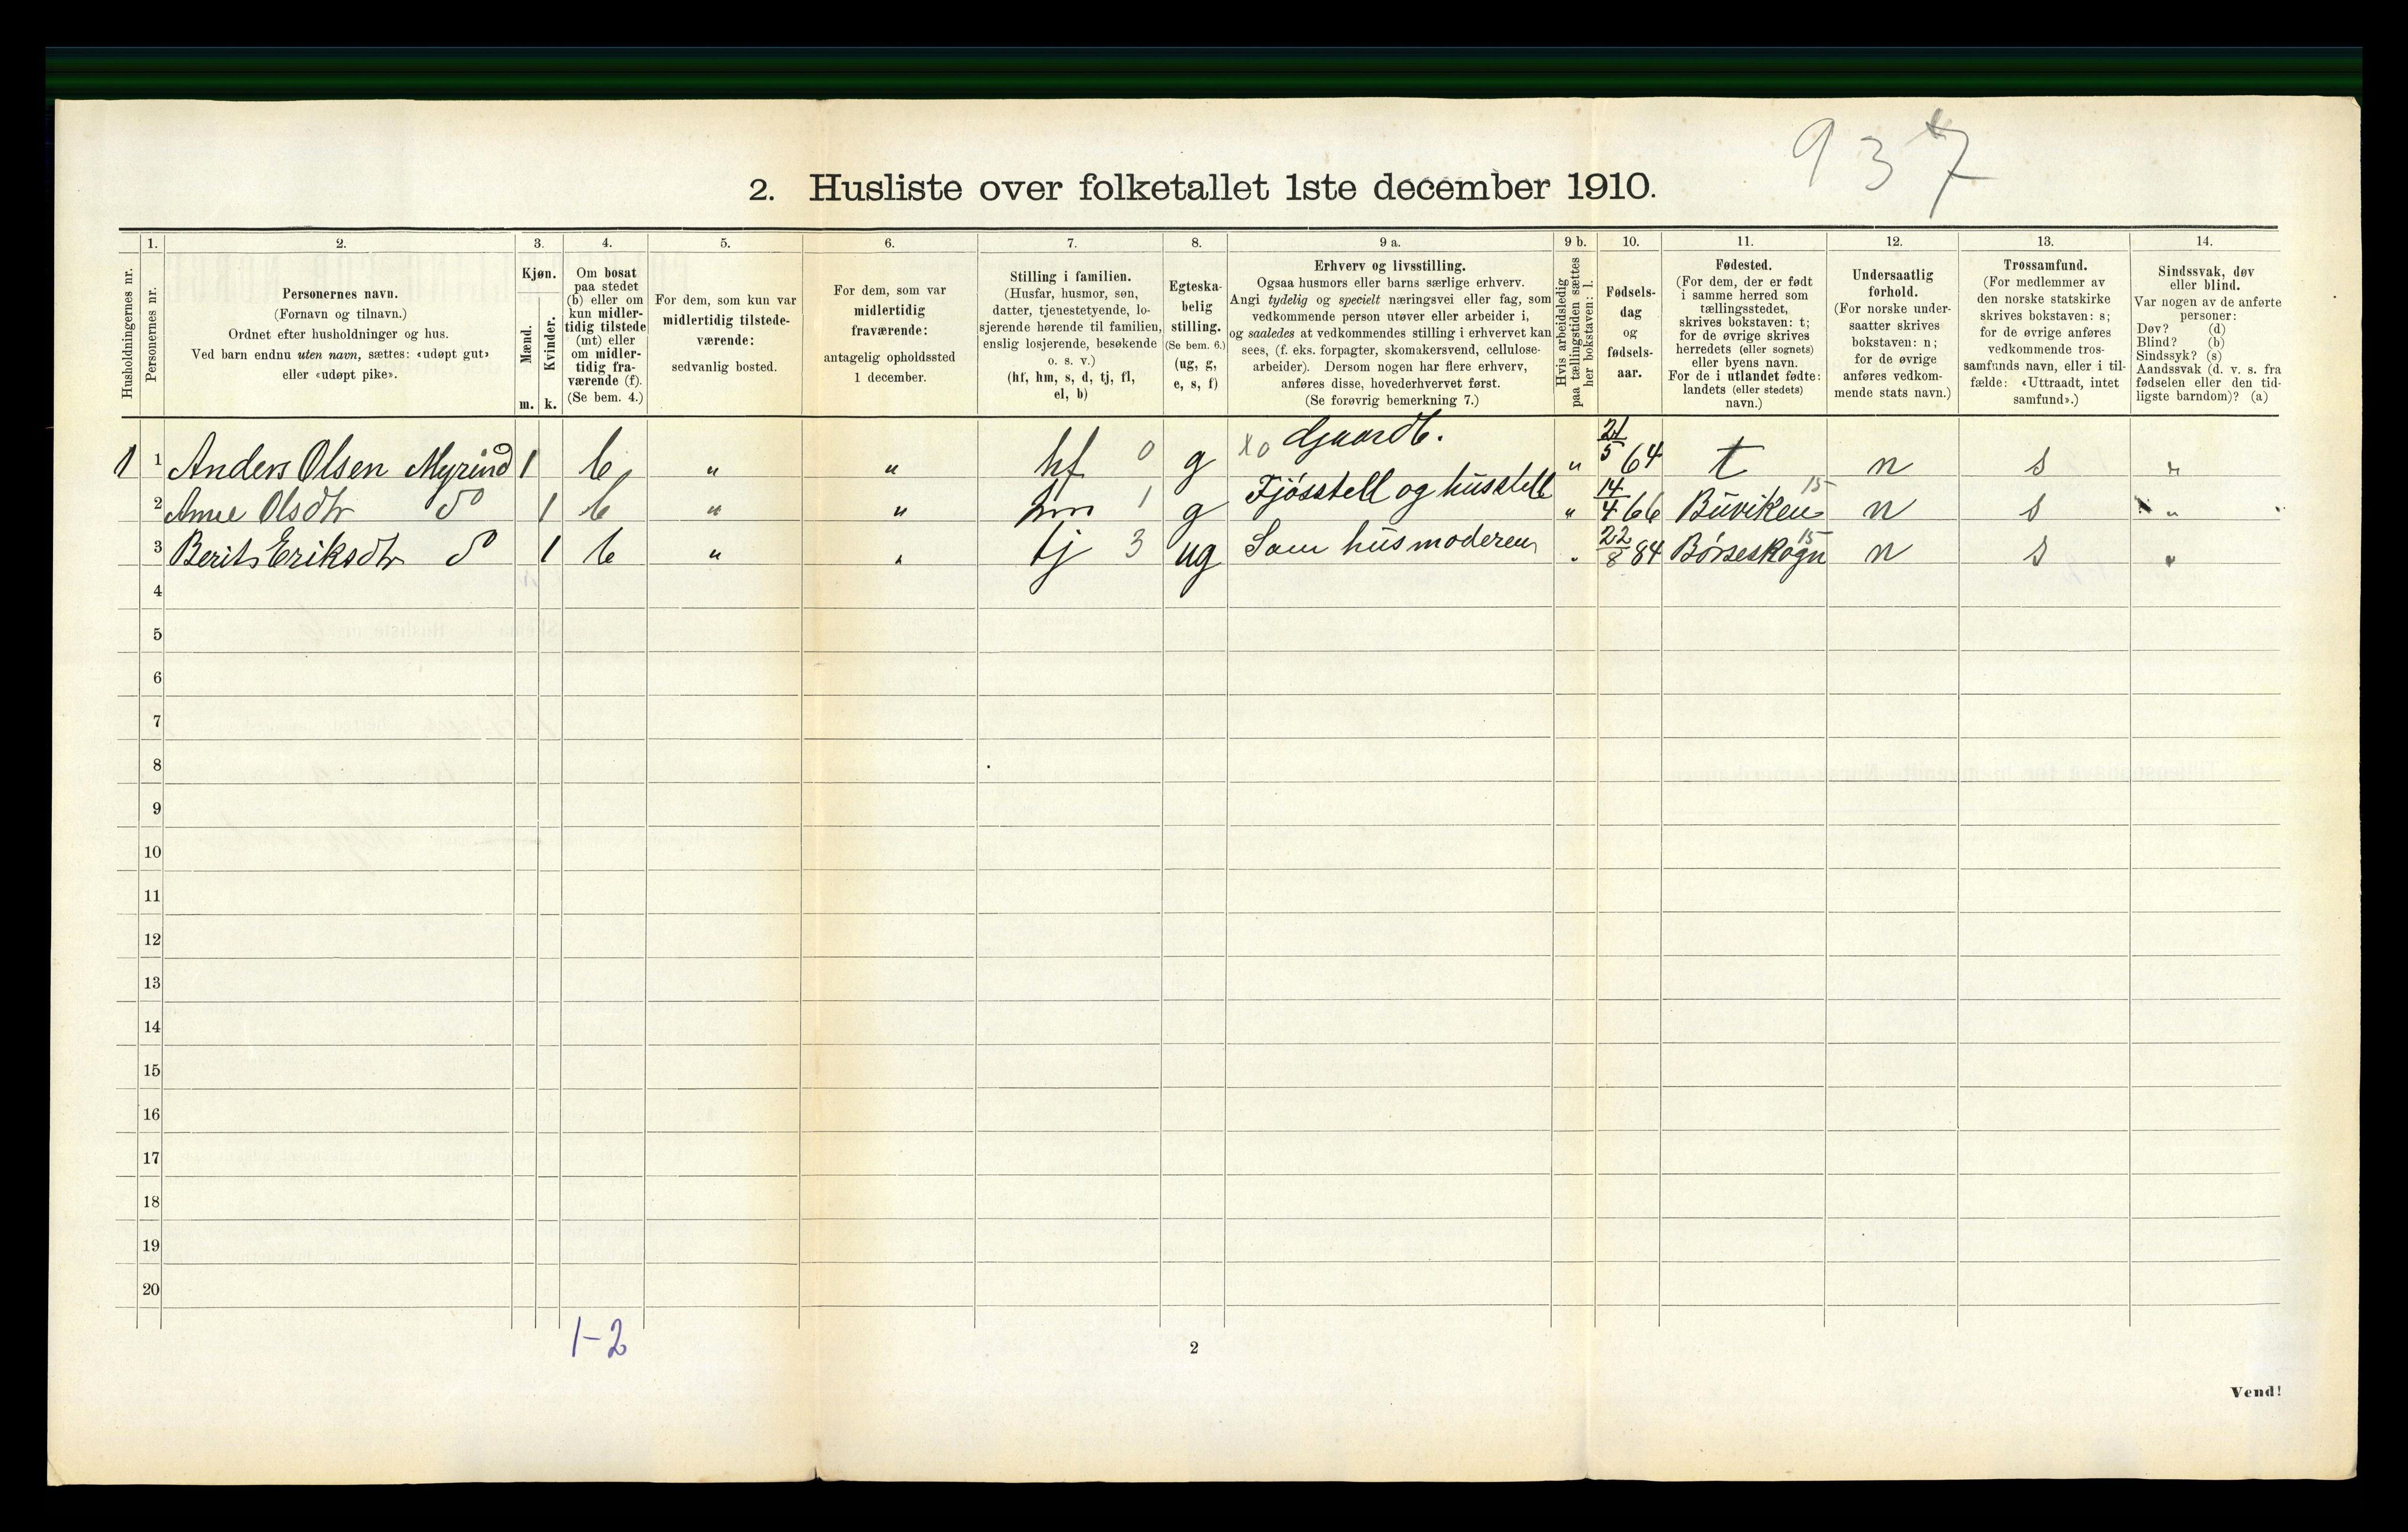 937
2. Husliste over folketallet 1ste december 1910.
Husholdningernes nr.
1.
Personernes nr.
2.
Personernes navn.
(Fornavn og tilnavn.)
Ordnet efter husholdninger og hus.
Ved barn endnu uten navn, sættes: «udøpt gut»
eller «udøpt pike».
3.
Kjøn.
Mænd.
m.
Kvinder.
k.
4.
Om bosat
paa stedet
(b) eller om
kun midler-
tidig tilstede
(mt) eller
om midler-
tidig fra-
værende (f).
(Se bem. 4.)
5.
For dem, som kun var
midlertidig tilstede-
værende:
sedvanlig bosted.
6.
For dem, som var
midlertidig
fraværende:
antagelig opholdssted
1 december.
7.
Stilling i familien.
(Husfar, husmor, søn,
datter, tjenestetyende, lo-
sjerende hørende til familien,
enslig losjerende, besøkende
o. s. v.)
(hf, hm, s, d, tj, fl,
el, b)
8.
Egteska-
belig
stilling.
(Se bem. 6.)
(ug, g,
e, s, f)
9 a.
Erhverv og livsstilling.
Ogsaa husmors eller barns særlige erhverv.
Angi tydelig og specielt næringsvei eller fag, som
vedkommende person utøver eller arbeider i,
og saaledes at vedkommendes stilling i erhvervet kan
sees, (f. eks. forpagter, skomakersvend, cellulose-
arbeider). Dersom nogen har flere erhverv,
anføres disse, hovederhvervet først.
(Se forøvrig bemerkning 7.)
9 b.
Hvis arbeidsledig
paa tællingstiden sættes
her bokstaven: l.
10.
Fødsels-
dag
og
fødsels-
aar.
11.
Fødested.
(For dem, der er født
i samme herred som
tællingsstedet,
skrives bokstaven: t;
for de øvrige skrives
herredets (eller sognets)
eller byens navn.
For de i utlandet fødte:
landets (eller stedets)
navn.)
12.
Undersaatlig
forhold.
(For norske under-
saatter skrives
bokstaven: n;
for de øvrige
anføres vedkom-
mende stats navn.)
13.
Trossamfund.
(For medlemmer av
den norske statskirke
skrives bokstaven: s;
for de øvrige anføres
vedkommende tros-
samfunds navn, eller i til-
fælde: «Uttraadt, intet
samfund».)
14.
Sindssvak, døv
eller blind.
Var nogen av de anførte
personer:
Døv? (d)
Blind? (b)
Sindssyk? (s)
Aandssvak (d. v. s. fra
fødselen eller den tid-
ligste barndom)? (a)
1 1 Anders Olsen Myrind 1 b " " hf 0 g x0 Gaardb. " 21/5 64 t n s "
2 Anne Olsdtr do 1 b " " hm 1 g Fjøsstell og husstell " 14/4 66 Buviken 15 n s "
3 Berit Eriksdtr do 1 b " " tj 3 ug Som husmoderen " 22/8 84 Børseskogn 15 n s "
4
5
6
7
8
9
10
11
12
13
14
15
16
17
18
19
20
1-2
2
Vend!